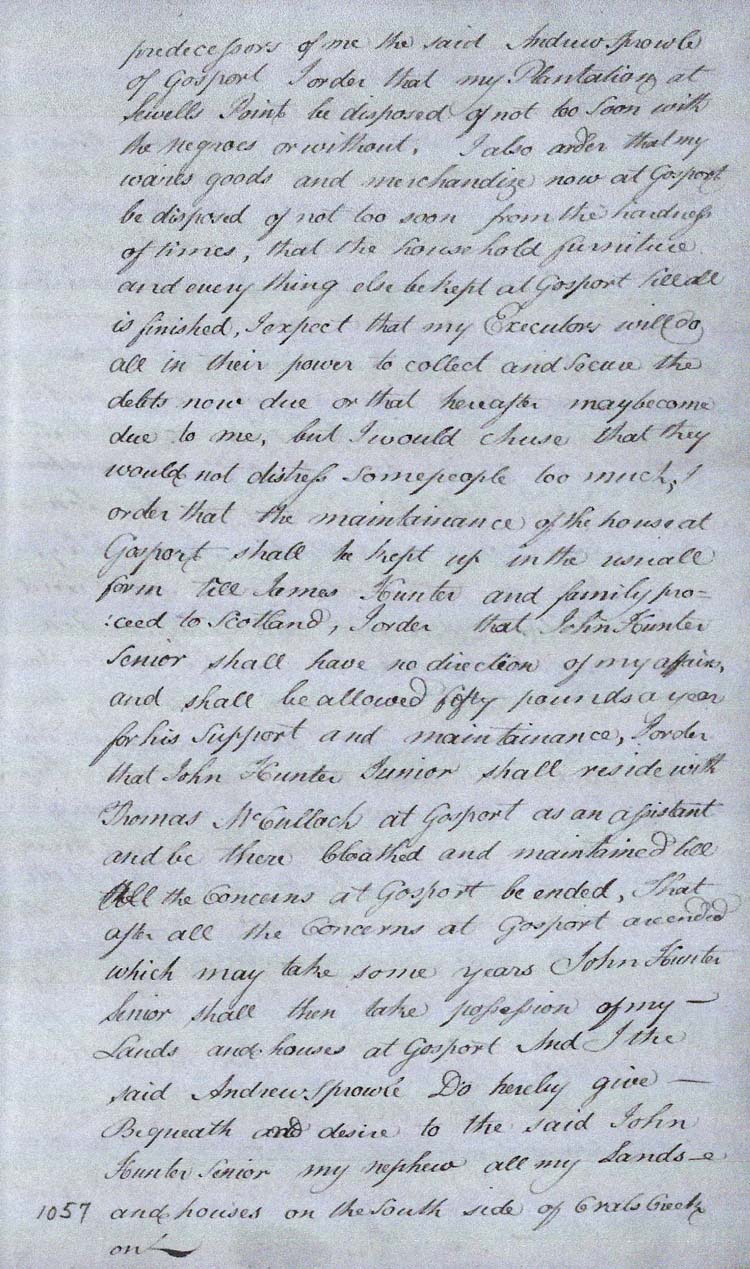 predecessors of me the said Andrew Sprowle
of Gosport I order that my Plantation at
Sewells Point be disposed of not too soon with
the negroes or without. I also order that my
wares goods and merchandize now at Gosport
be disposed of not too soon from the hardness
of times, that the household furniture
and every thing else be kept at Gosport till all
is finished, I expect that my Executors will do
all in their power to collect and secure the
debts now due or that hereafter may become
due to me, but I would chuse that they
would not distress some people too much, I
order that the maintainance of the house at
Gosport shall be kept up in the usuall
form till James Hunter and family pro=
:ceed to Scotland, I order that John Hunter
Senior shall have no direction of my affairs,
and shall be allowed fifty pounds a year
for his support and maintainance, I order
that John Hunter Junior shall reside with
Thomas McCullach at Gosport as an assistant
and be there Cloathed and maintained till
all the Concerns at Gosport be ended, That
after all the Concerns at Gosport are ended
which may take some years John Hunter
Senior shall then take possession of my —
Lands and houses at Gosport And I the
said Andrew Sprowle Do hereby give —
Bequeath and desire to the said John
Hunter Senior my nephew all my Lands
1057 and houses on the South side of Crabs Creek
on